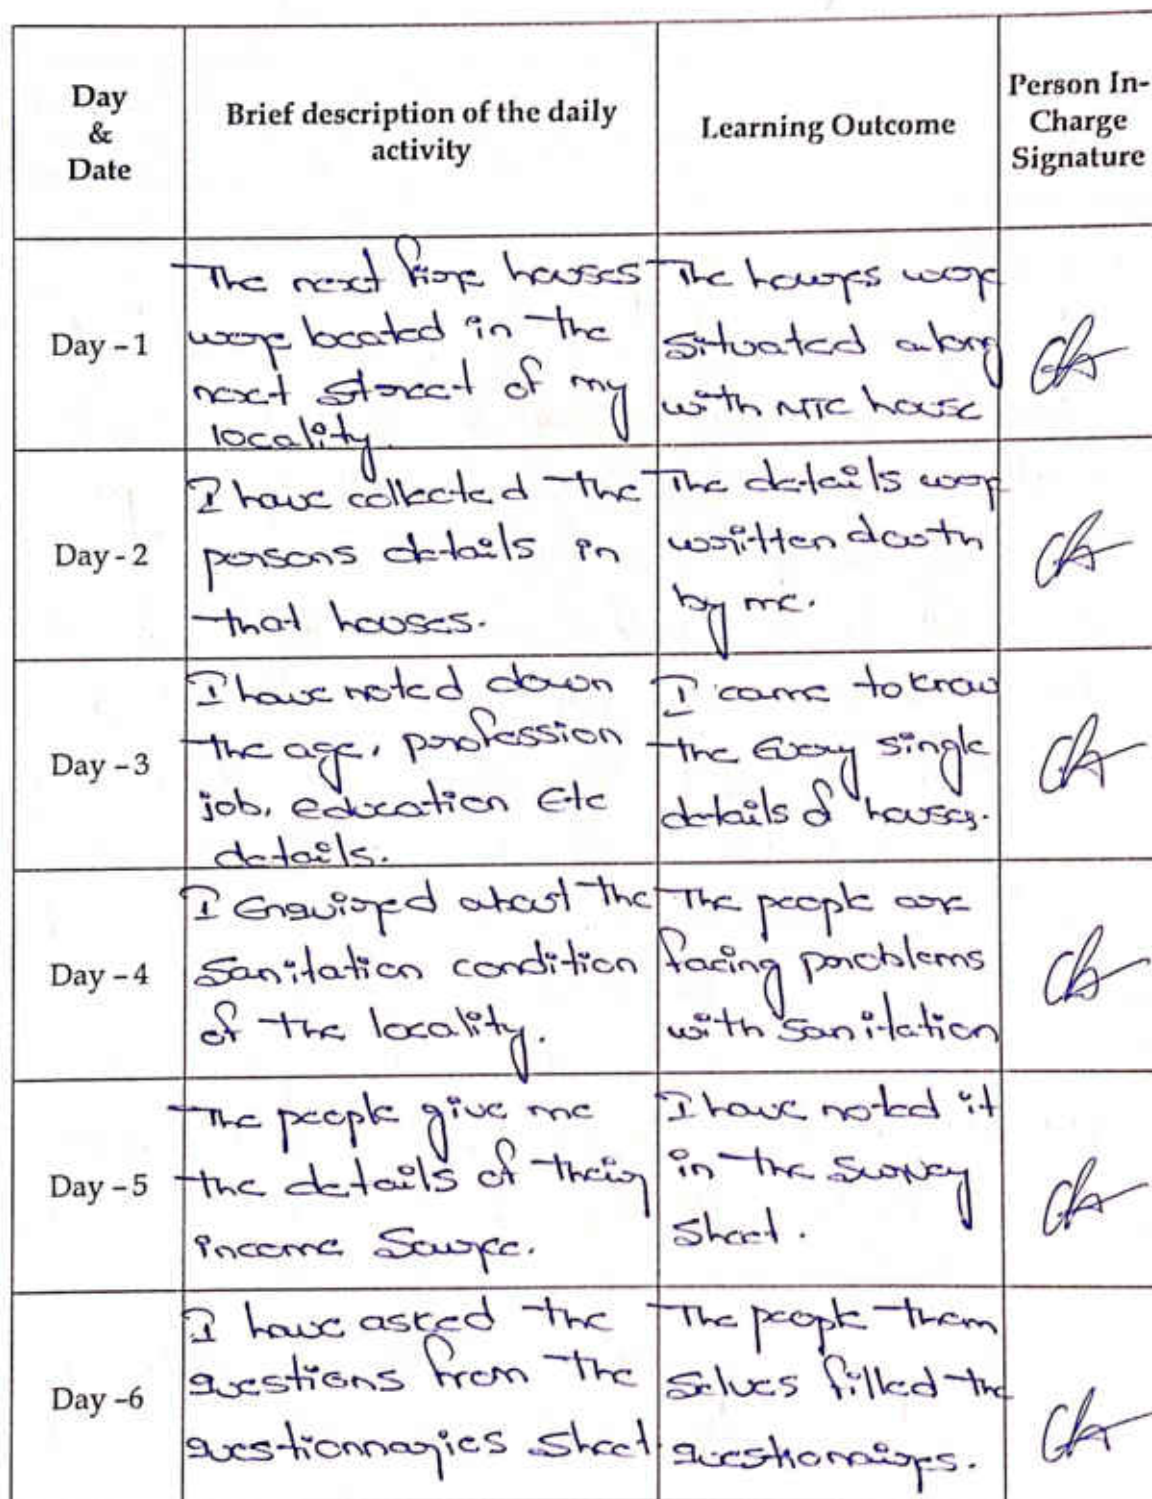 Day
&
Date
Brief description of the daily
activity
Learning Outcome
Person In-
Charge
Signature
Day - 1
The next five houses
were located in the
next street of my
locality.
The houses were
situated along
with house
Day - 2
I have collected the
persons details in
that houses.
The details were
written down
by me.
Day - 3
I have noted down
the age, profession
job, education Etc
details.
I came to know
the Every single
details of houses.
Day - 4
I Enquired about the
sanitation condition
of the locality.
The people are
facing problems
with sanitation
Day - 5
The people give me
the details of their
income Source.
I have noted it
in the Survey
Sheet.
Day -6
I have asked the
questions from the
questionnaries Sheet
The people them
selves filled the
questionnaires.